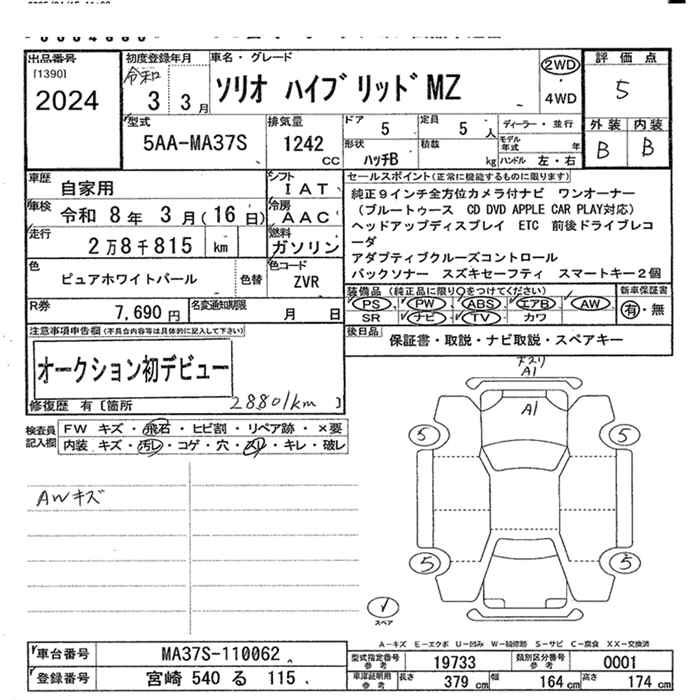 出品番号
[1390]
2024
初度登録年月
令和
3 3月
車名・グレード
ソリオ ハイブリッドMZ
2WD
・
4WD
評価点
5
型式
5AA-MA37S
排気量
1242
CC
ドア
5
定員
5 人
ディーラー・並行
形状
ハッチB
積載
kg
モデル年式 年
ハンドル 左・右
外装 内装
B B
車歴
自家用
シフト
IAT
車検
令和 8年 3月(16日)
冷房
AAC
走行
2万8千815 km
燃料
ガソリン
色
ピュアホワイトパール
色替
色コード
ZVR
R券
7,690円
名変通知期限
月 日
セールスポイント(正常に機能するものに限ります)
純正9インチ全方位カメラ付ナビ ワンオーナー
(ブルートゥース CD DVD APPLE CAR PLAY対応)
ヘッドアップディスプレイ ETC 前後ドライブレコ
ーダ
アダプティブクルーズコントロール
バックソナー スズキセーフティ スマートキー2個
装備品(純正品に限り○をつけてください)
PS PW ABS エアB AW
SR ナビ TV カワ
新車保証書
有・無
後日品
保証書・取説・ナビ取説・スペアキー
注意事項申告欄(不具合内容等は具体的に記入して下さい)
オークション初デビュー
修復歴 有〔箇所 〕
28801km
検査員
記入欄
FW キズ・飛石・ヒビ割・リペア跡・×要
内装 キズ・汚レ・コゲ・穴・スリ・キレ・破レ
AWキズ
A1
A1
5
5
5
5
スペア
A-キズ E-エクボ U-凹み W-補修跡 S-サビ C-腐食 XX-交換済
車台番号
MA37S-110062
登録番号
宮崎 540 る 115
型式指定番号
参考
19733
類別区分番号
参考
0001
車庫証明用
参考
長さ 379 cm
幅 164 cm
高さ 174 cm